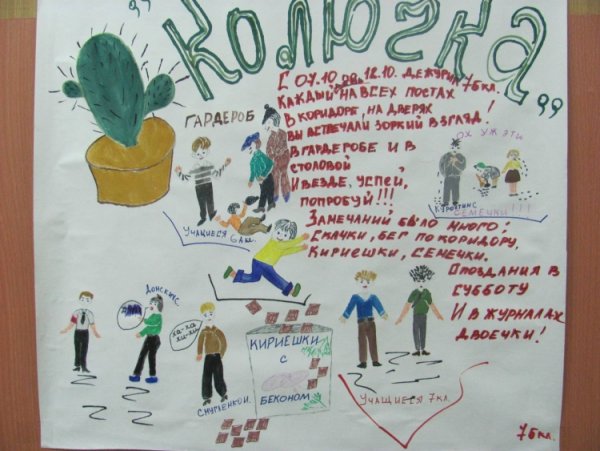 „Колючка„
С 07.10 по 12.10. дежурил 7б кл.
Каждый на всех постах
В коридоре, на дверях
Вы встречали зоркий взгляд!
В гардеробе и в
столовой
И везде, успей,
попробуй!!!
Замечаний было много:
Скачки, бег по коридору,
Кириешки, семечки.
Опоздания в
субботу
И в журналах
двоечки!
Гардероб
Учащиеся 6А кл.
Ох уж эти
семечки!!!
Донских
ха-ха
хи-хи
Кириешки
с
беконом
Учащиеся 7 кл.
7б кл.